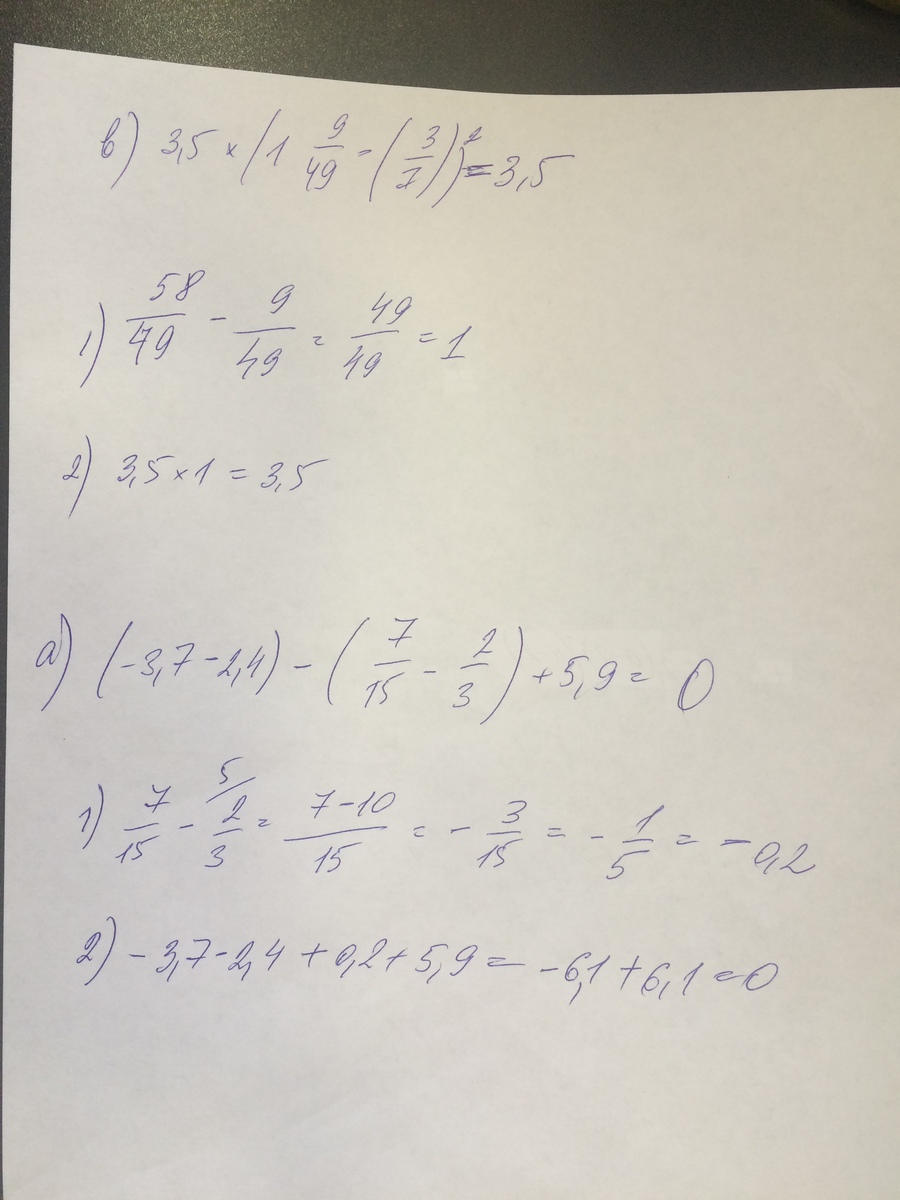 в) 3,5 × (1 9/49 - (3/7))² = 3,5
1) 58/49 - 9/49 = 49/49 = 1
2) 3,5 × 1 = 3,5
а) (-3,7 - 2,4) - (7/15 - 2/3) + 5,9 = 0
1) 7/15 - 5/ 2/3 = 7-10/15 = - 3/15 = - 1/5 = - 0,2
2) - 3,7 - 2,4 + 0,2 + 5,9 = - 6,1 + 6,1 = 0